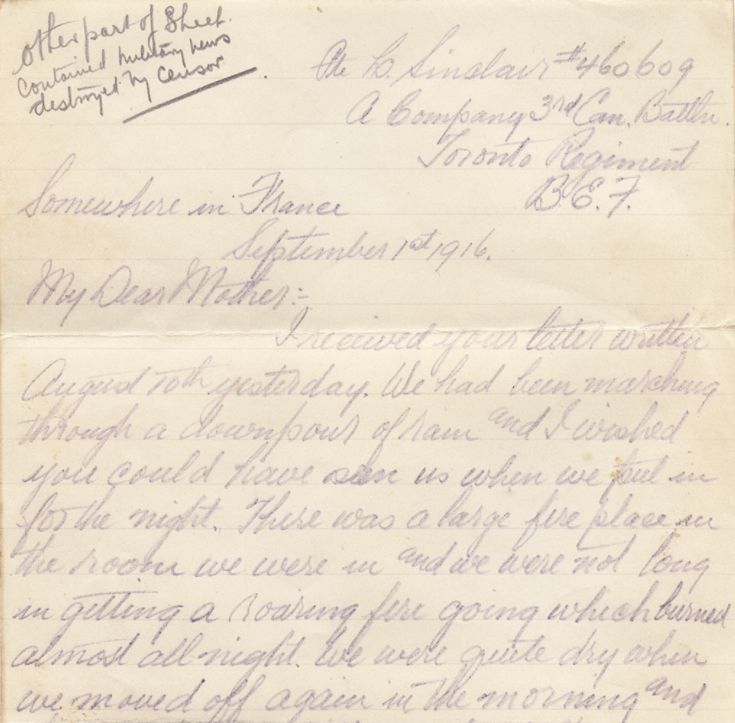 Other part of Sheet
contained military news
destroyed by Censor.
Pte C. Sinclair #460609
A Company 3rd Can. Battln.
Toronto Regiment
B.E.F.
Somewhere in France
September 1st 1916.
My Dear Mother:-
I received your letter written
August 10th yesterday. We had been marching
through a downpour of rain and I wished
you could have seen us when we put in
for the night. There was a large fire place in
the room we were in and we were not long
in getting a roaring fire going which burned
almost all night. We were quite dry when
we moved off again in the morning and